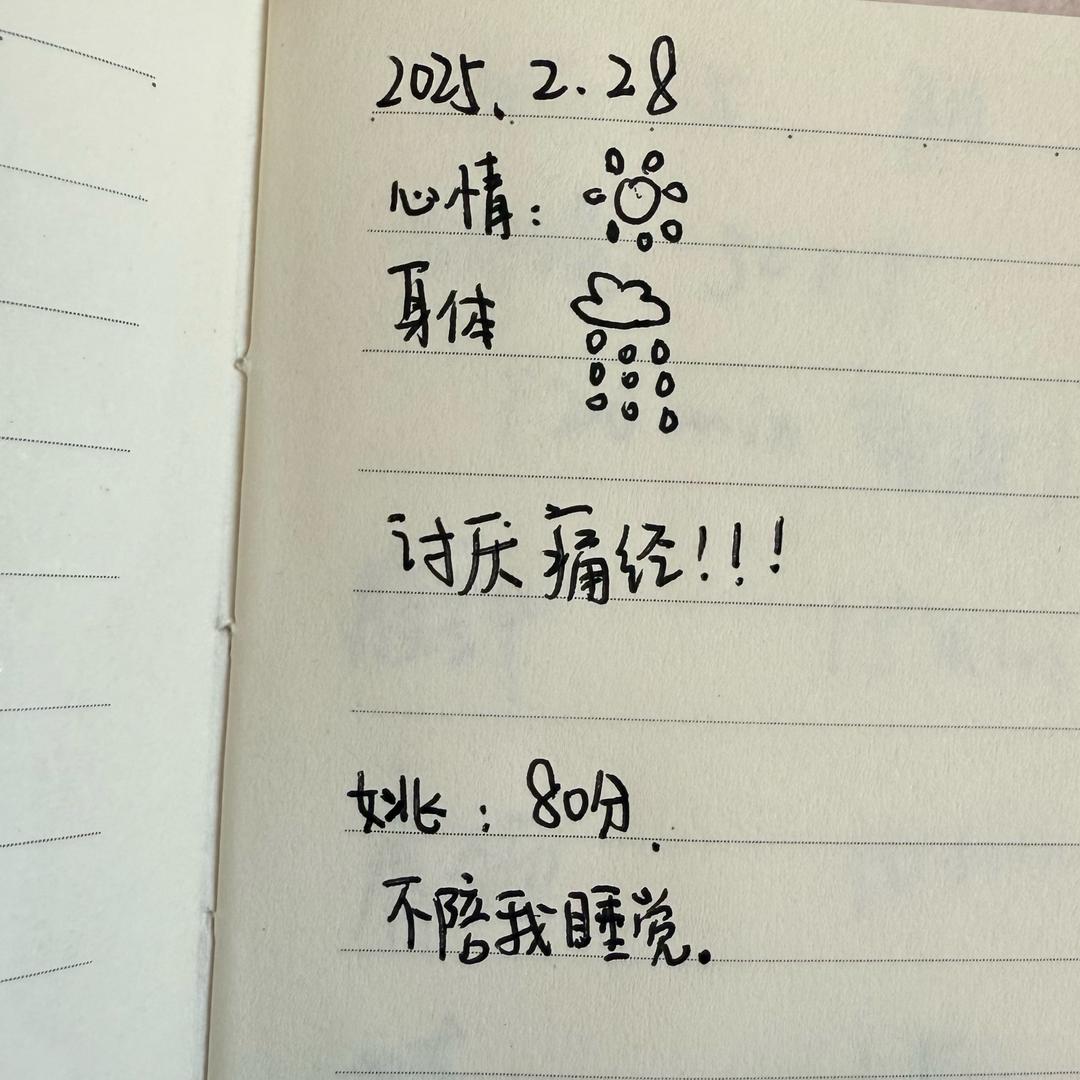 2025.2.28
心情:
身体
讨厌痛经!!!
姚:80分.
不陪我睡觉.